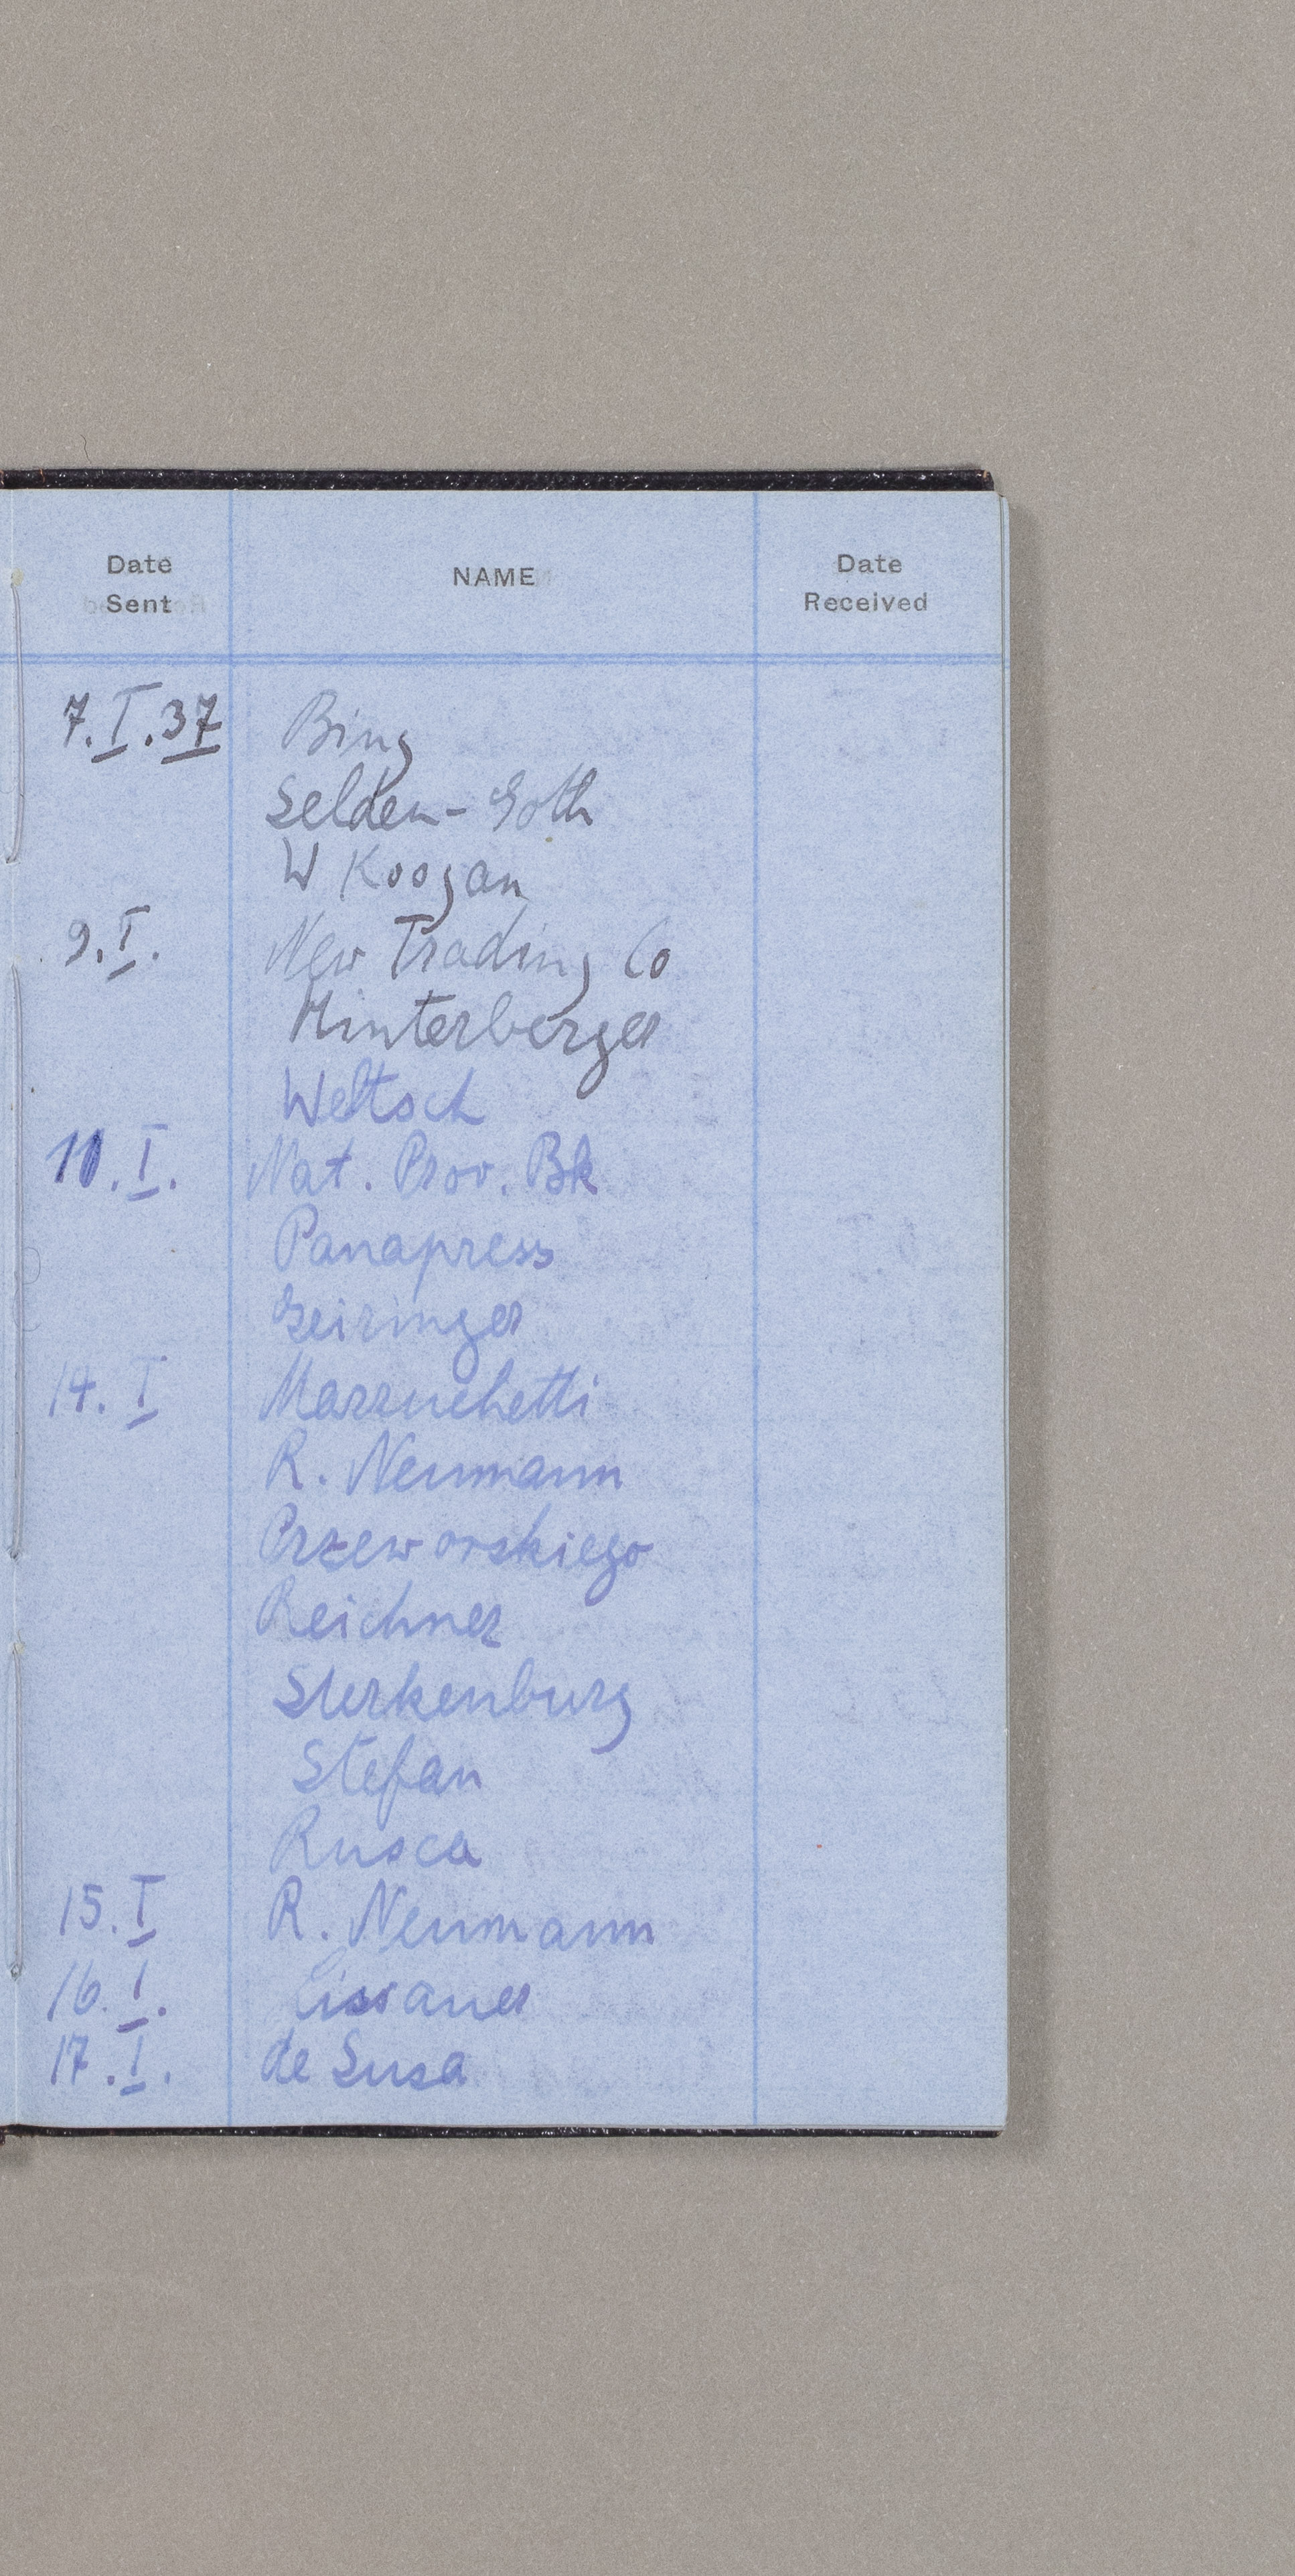 Date Sent NAME Date Received
7.I.37 Bing
Selden-Goth
W Koogan
9.I. New Trading Co
Hinterberger
Weltsch
10.I. Nat. Prov. Bk
Panapress
Geiringer
14.I Marzuchetti
R. Neumann
Przeworskiego
Reichner
Sterkenburg
Stefan
Rusca
15.I R. Neumann
16.I. Lissauer
17.I. de Susa